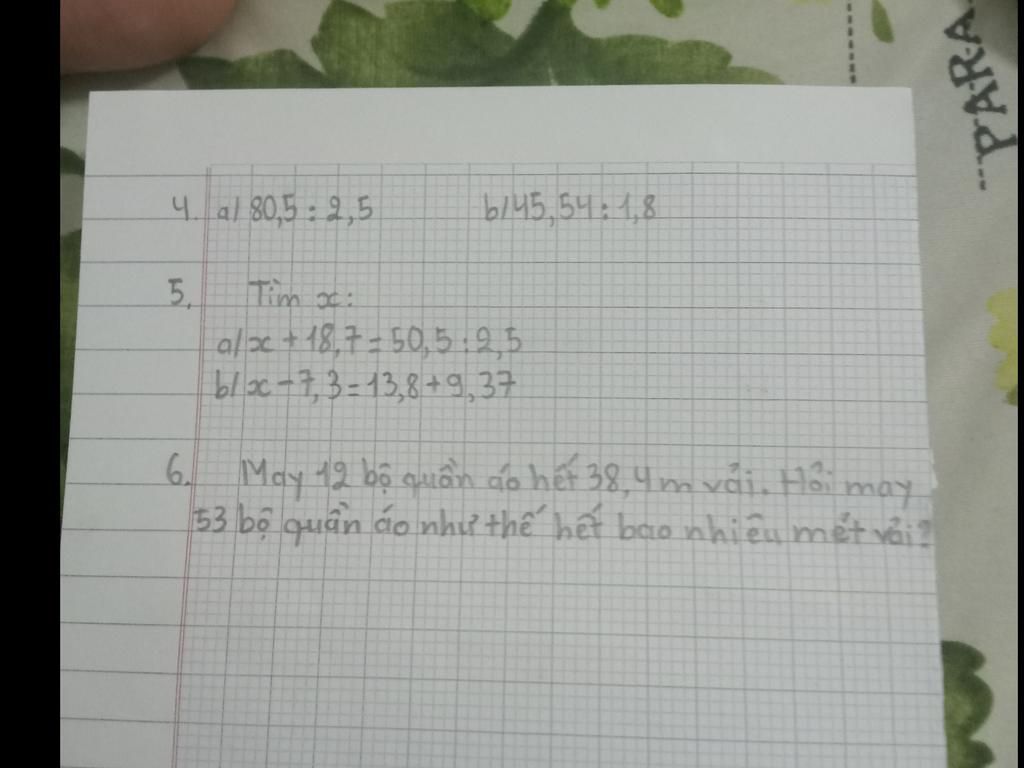 PARA
4. a/ 80,5 : 2,5 b/ 45,54 : 1,8
5. Tìm x:
a/ x + 18,7 = 50,5 : 2,5
b/ x - 7,3 = 13,8 + 9,37
6. May 12 bộ quần áo hết 38,4 m vải. Hỏi may
53 bộ quần áo như thế hết bao nhiêu mét vải?